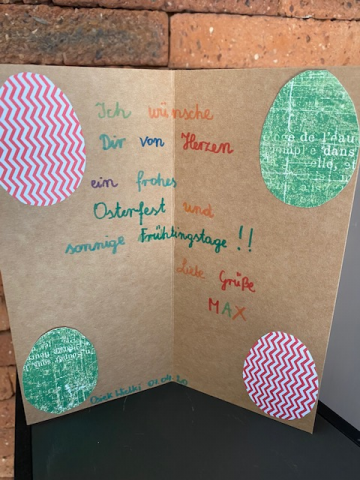 Ich wünsche
Dir von Herzen
ein frohes
Osterfest und
sonnige Frühlingstage!!
Liebe Grüße
MAX
de l'eau
dans
elle,